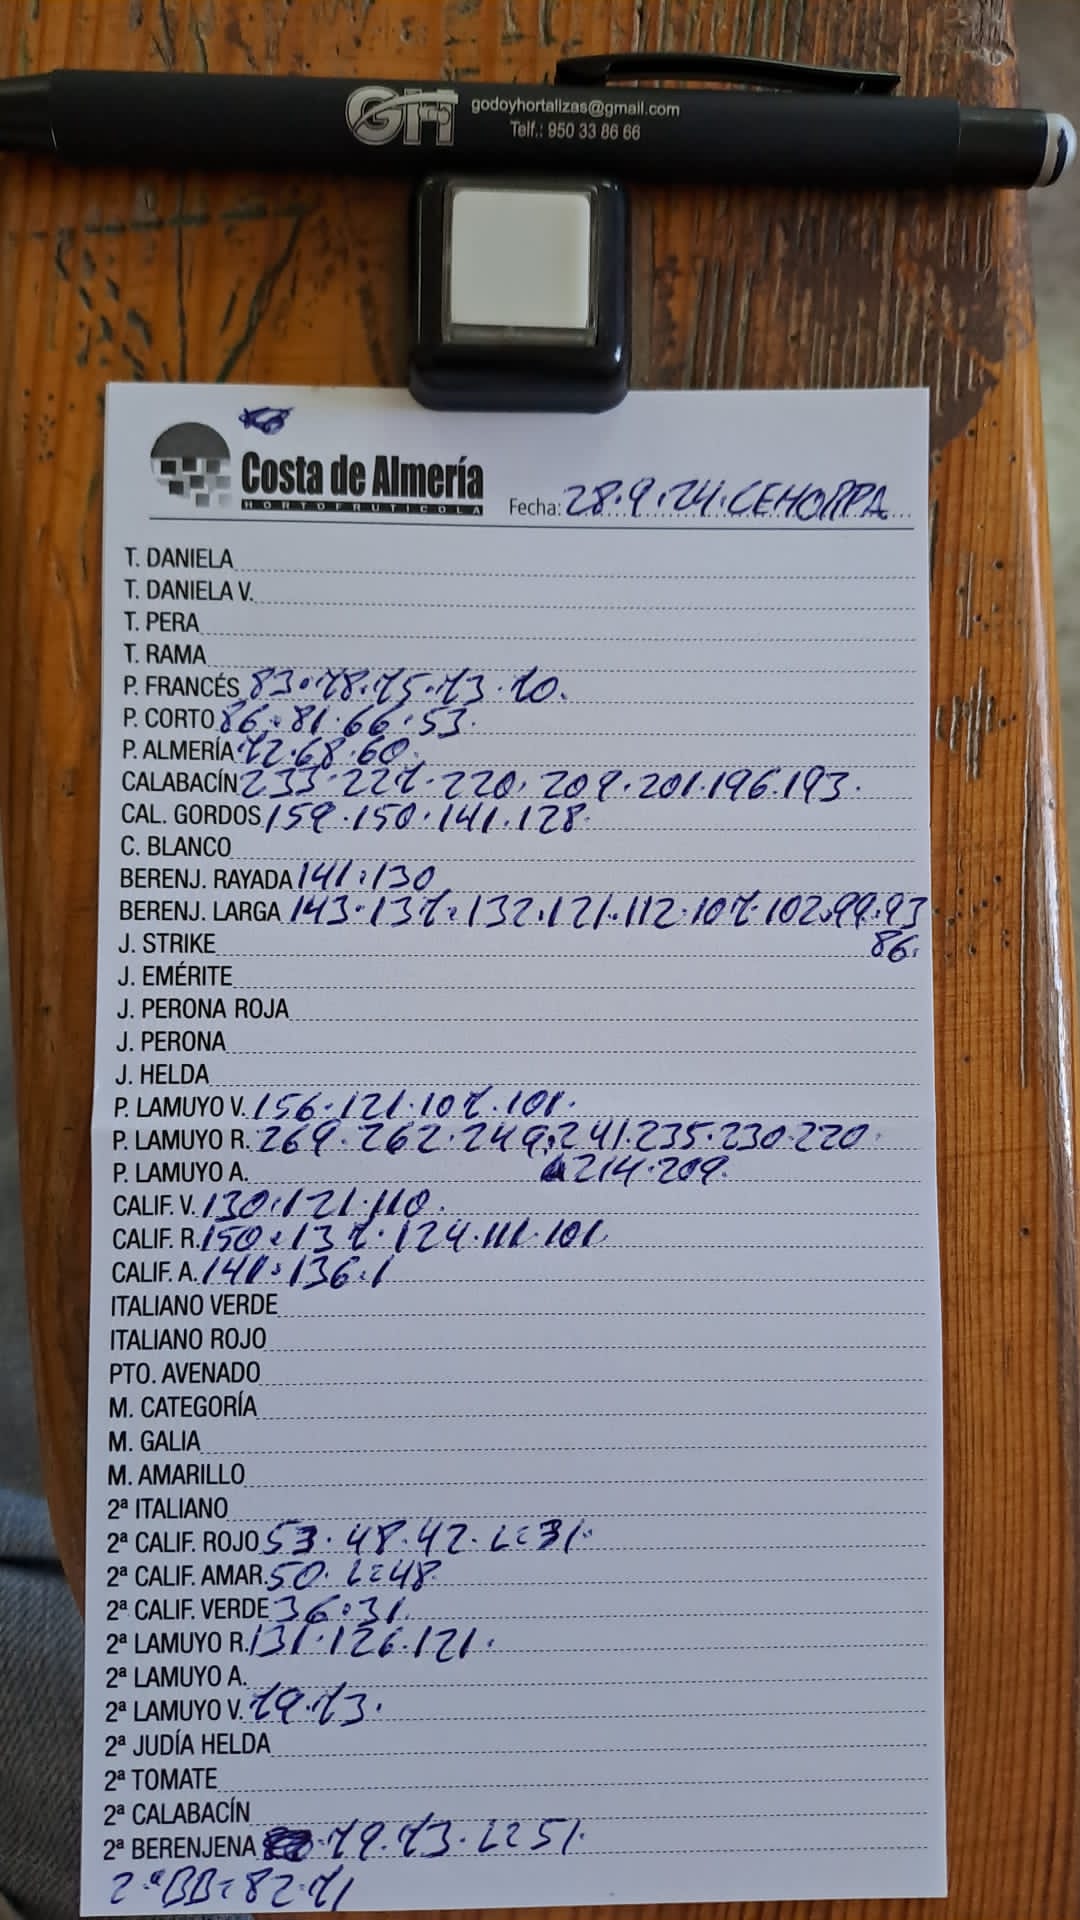 GH godoyhortalizas@gmail.com
Telf.: 950 33 86 66
Costa de Almería
HORTOFRUTICOLA
Fecha: 28.9.24.CEHORPA
T. DANIELA
T. DANIELA V.
T. PERA
T. RAMA
P. FRANCÉS 83.78.75.73.70.
P. CORTO 86.81.66.53.
P. ALMERÍA 72.68.60.
CALABACÍN 233.227.220.209.201.196.193.
CAL. GORDOS 159.150.141.128.
C. BLANCO
BERENJ. RAYADA 141.130
BERENJ. LARGA 143.137.132.121.112.107.102.99.93
J. STRIKE 86.
J. EMÉRITE
J. PERONA ROJA
J. PERONA
J. HELDA
P. LAMUYO V. 156.121.107.101.
P. LAMUYO R. 269.262.249.241.235.230.220.
P. LAMUYO A. 214.209.
CALIF. V. 130.121.110.
CALIF. R. 150.137.124.111.101.
CALIF. A. 141.136.1
ITALIANO VERDE
ITALIANO ROJO
PTO. AVENADO
M. CATEGORÍA
M. GALIA
M. AMARILLO
2ª ITALIANO
2ª CALIF. ROJO 53.48.42.L=31.
2ª CALIF. AMAR. 50.L=48.
2ª CALIF. VERDE 36.31.
2ª LAMUYO R. 131.126.121.
2ª LAMUYO A.
2ª LAMUYO V. 79.73.
2ª JUDÍA HELDA
2ª TOMATE
2ª CALABACÍN
2ª BERENJENA 79.73.L=51.
2ªBB=82.71